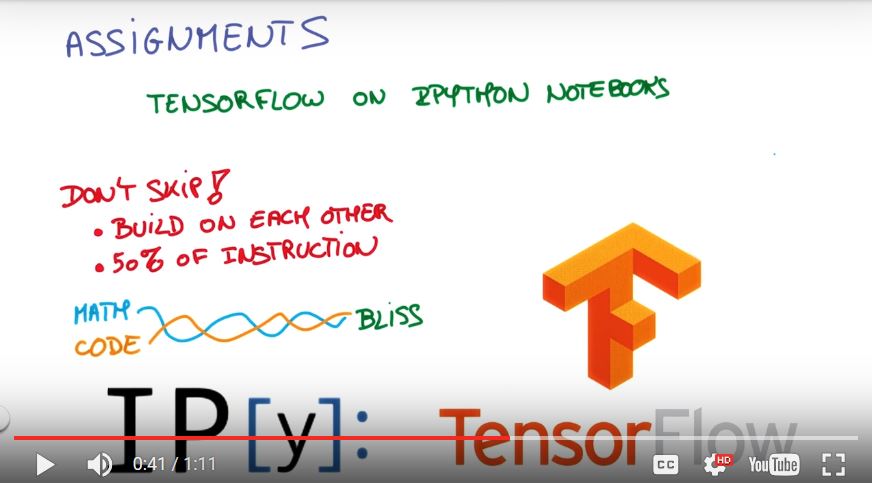 ASSIGNMENTS
TENSORFLOW ON IPYTHON NOTEBOOKS
DON'T SKIP!
• BUILD ON EACH OTHER
• 50% OF INSTRUCTION
MATH
CODE
BLISS
IP[y]:
TensorFlow
0:41 / 1:11
CC
HD
YouTube